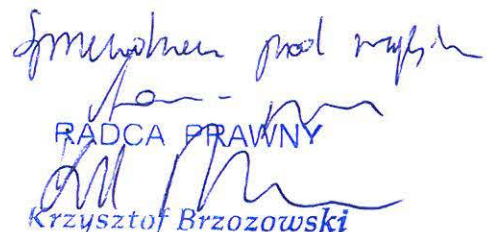 Sprawdziłem pod względem
RADCA PRAWNY
Krzysztof Brzozowski